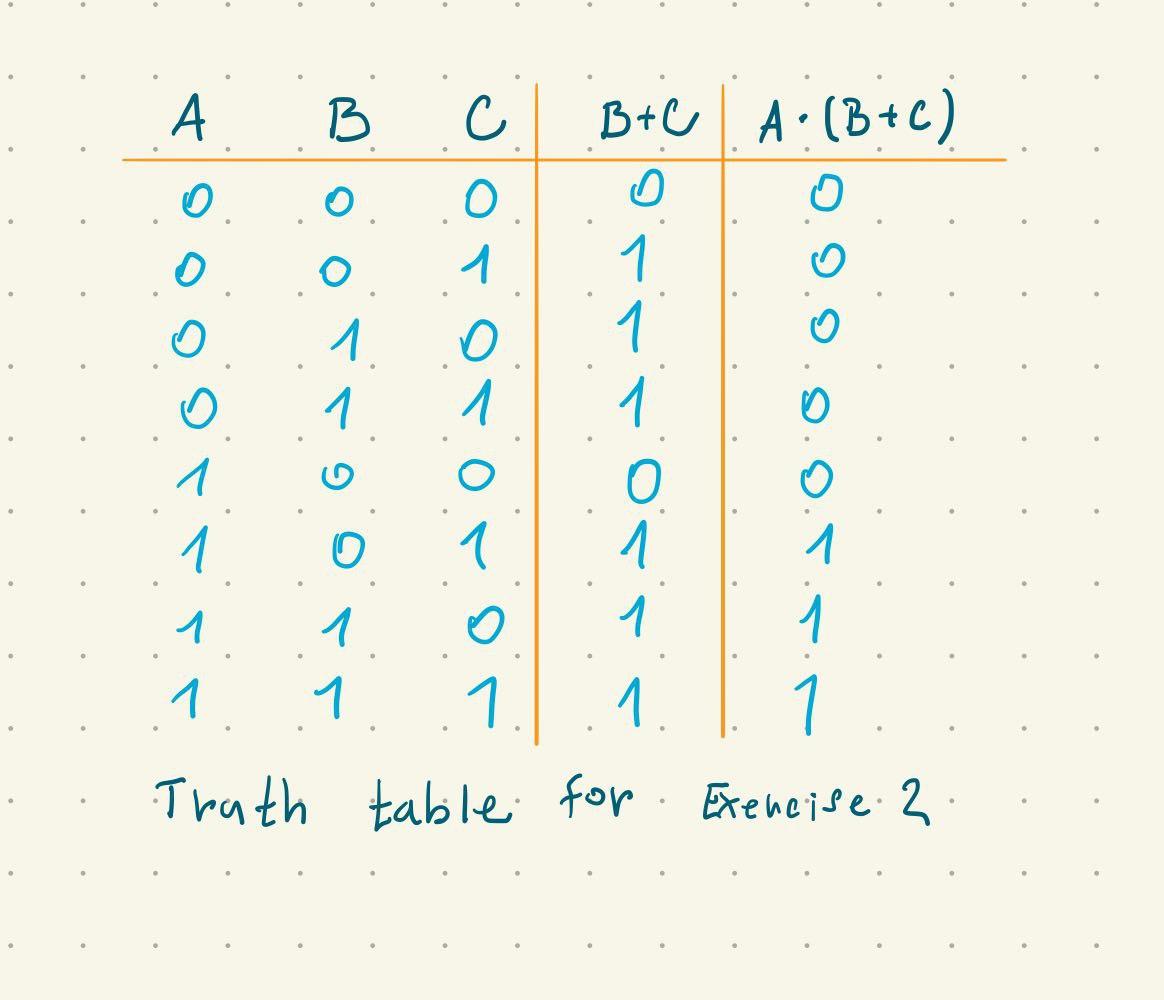 A B C B+C A·(B+C)
0 0 0 0 0
0 0 1 1 0
0 1 0 1 0
0 1 1 1 0
1 0 0 0 0
1 0 1 1 1
1 1 0 1 1
1 1 1 1 1
Truth table for Exercise 2